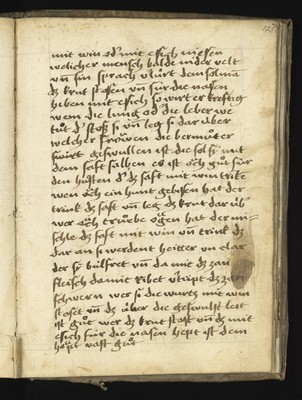 mit win od' mit essich niessen
welicher mensch balde nider velt
vn̄ sin sprach v'lürt dem solman
dz krut stossen vn̄ für die nasen
heben mit essich so wirt er kreftig
wem die lung od' die leber we
tůt d' stoß si vn̄ leg si dar über
welcher frowen die bermůter
swirt geswullen ist die sol sich mit
dem saft salben es ist och gůt für
den hůsten d' dz saft mit win trinkt
wen och ein hunt gebissen hat der
trink dz saft vn̄ leg dz krut dar üb'
wer och trüebe ögen hat der mi=
schle dz saft mit win vn̄ trink dz
dar an si werdent heitter vn̄ clar
der sy vn̄ da mit dz zan
fleisch da mit ribet v'tript dz zan
schwern wer si die wurtz mit win
stoset vn̄ dz über die geswulst leit
ist gůt wer dz krut stost vn̄ dz mit
essich für die nasen hept ist dem
höpt vast gůt